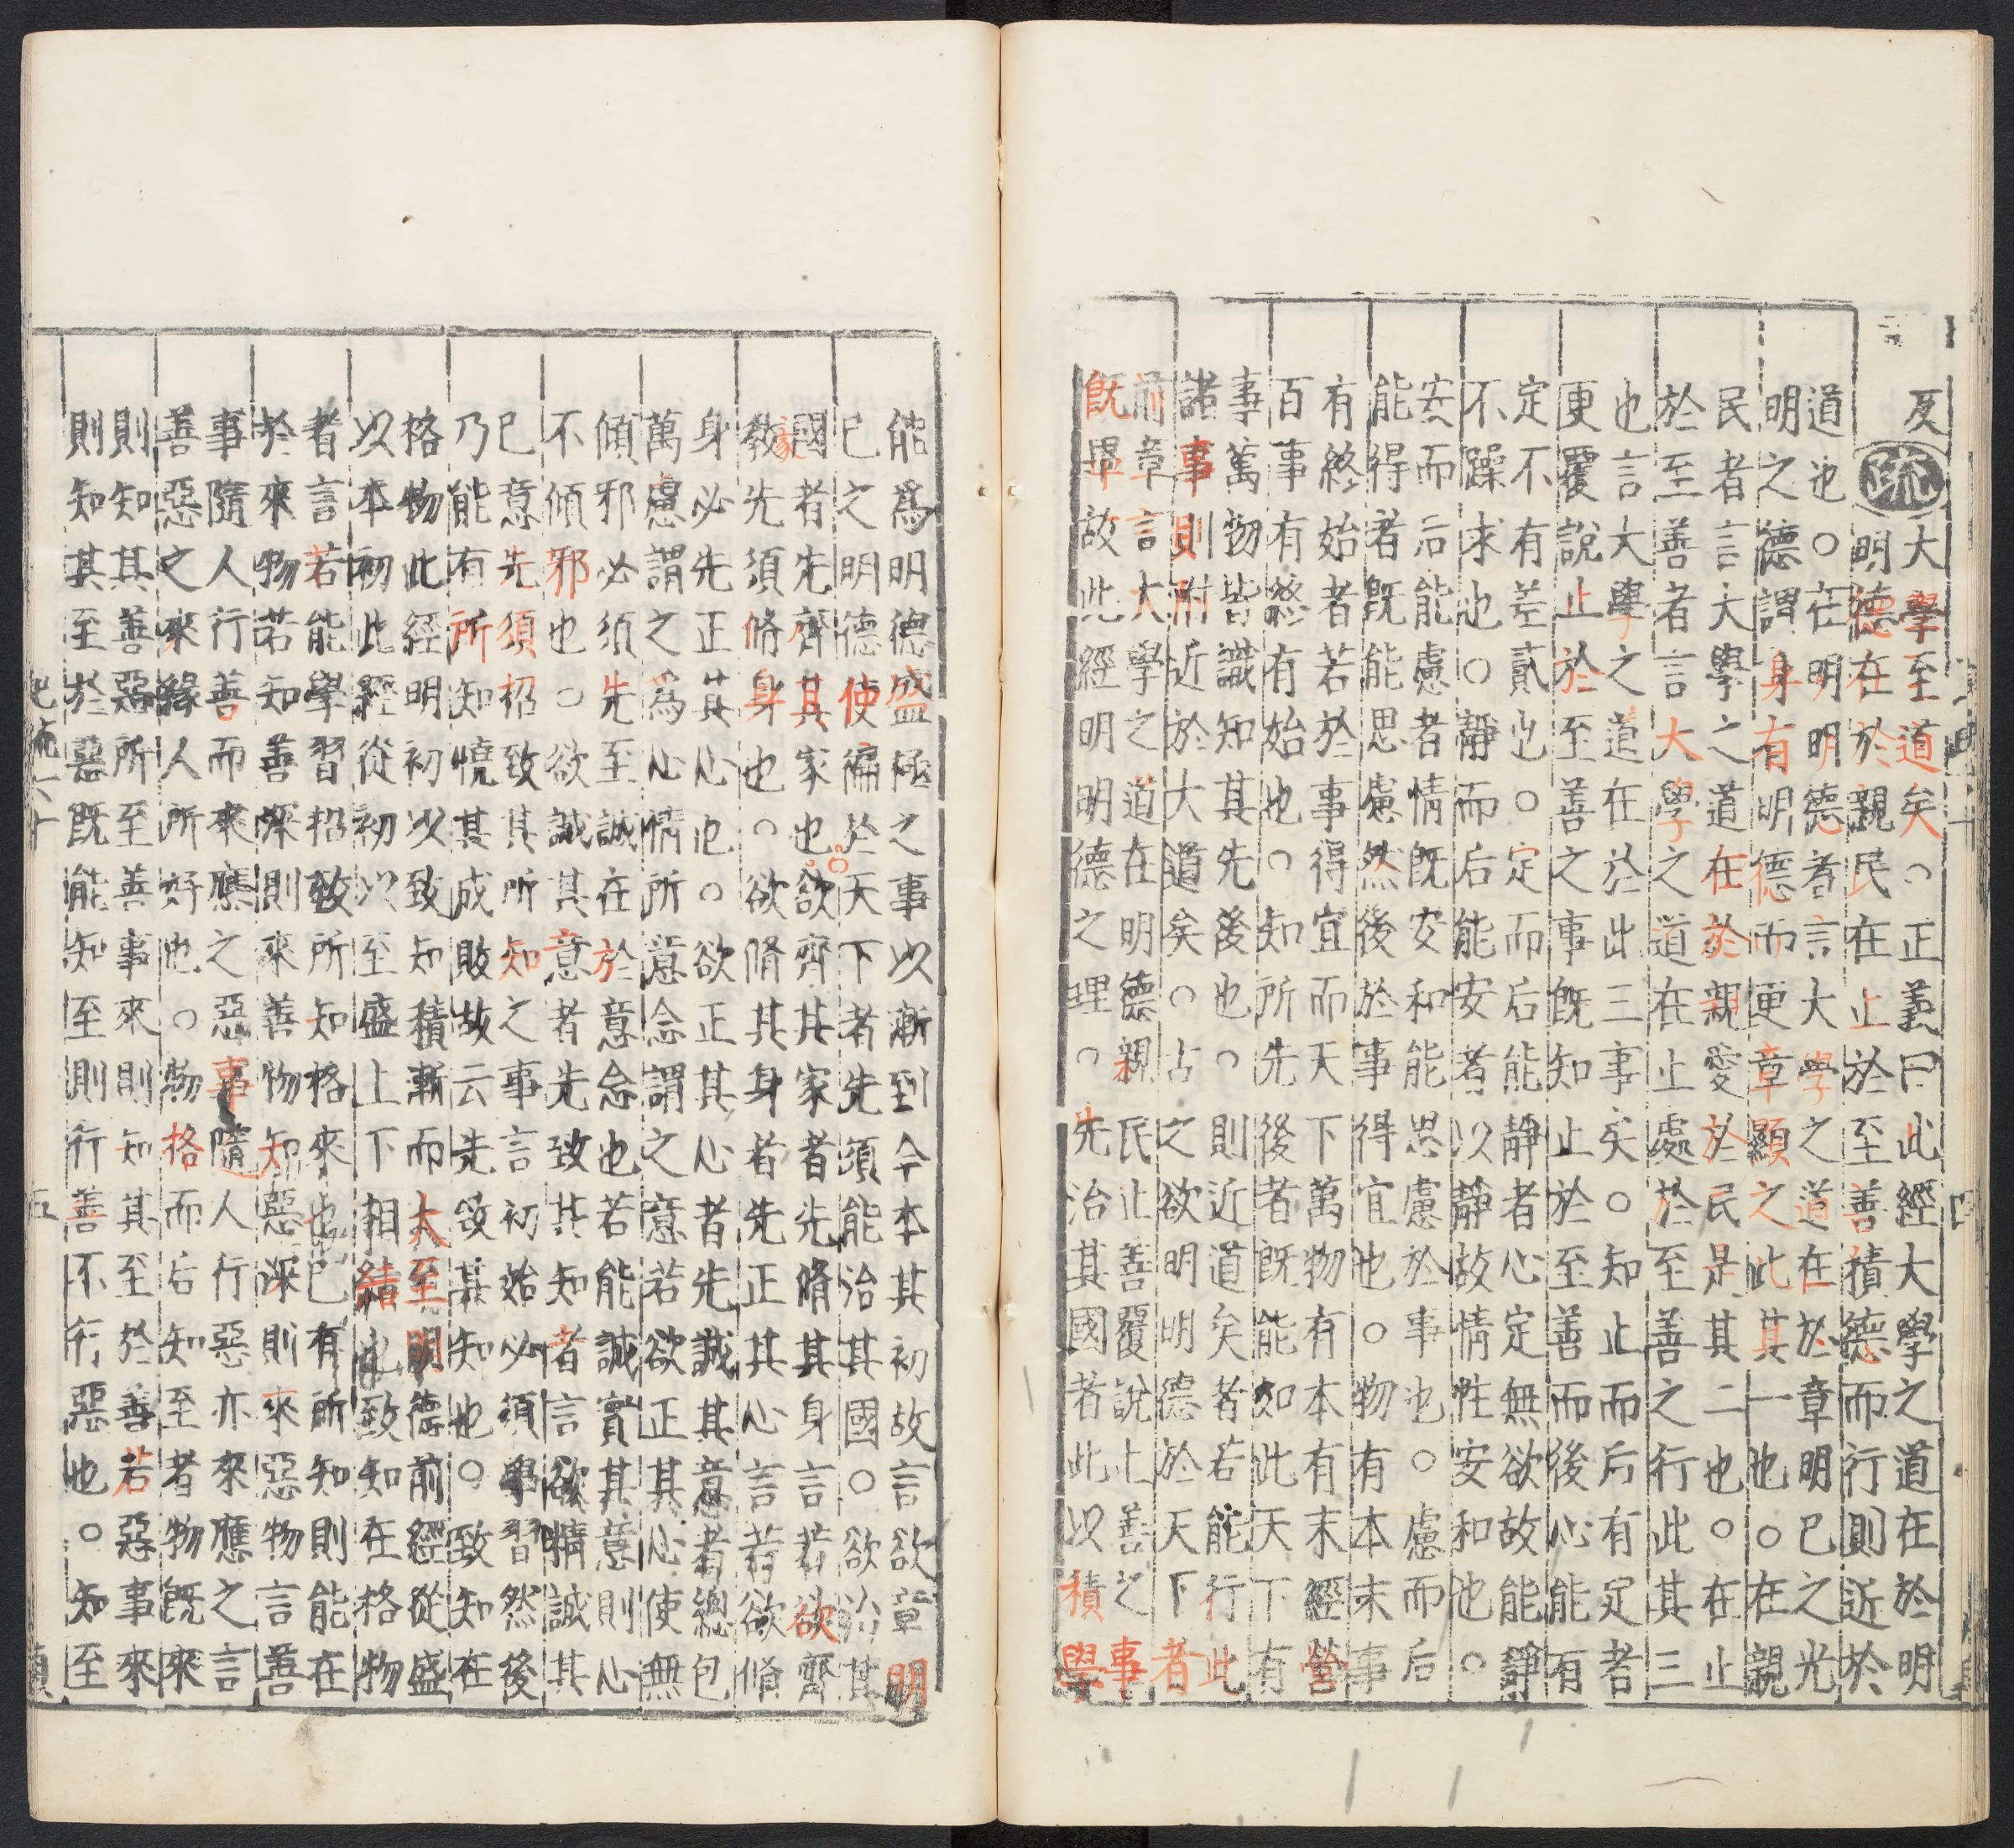 反疏大學至道矣○正義曰此經大學之道在於明
明德在於親民在止於至善積德而行則近於
道也○在明明德者言大學之道在於章明已之光
明之德謂身有明德而更章顯之此其一也○在親
民者言大學之道在於親愛於民是其二也○在止
於至善者言大學之道在止處於至善之行此其三
也言大學之道在於此三事矣○知止而后有定者
更覆說止於至善之事既知止於至善而後心能有
定不有差貳也○定而后能靜者心定無欲故能靜
不躁求也○靜而后能安者以靜故情性安和也○
安而后能慮者情既安和能思慮於事也○慮而后
能得者既能思慮然後於事得宜也○物有本末事
有終始者若於事得宜而天下萬物有本有末經營
百事有終有始也○知所先後者既能如此天下有
事萬物皆識知其先後也○則近道矣者若能行此
諸事則附近於大道矣○古之欲明明德於天下者
前章言大學之道在明德親民止善覆說止善之事
既畢故此經明明德之理○先治其國者此以積學
能爲明德盛極之事以漸到今本其初故言欲章明
已之明德使徧於天下者先須能治其國○欲治其
國者先齊其家也○欲齊其家者先脩其身言若欲齊
家
教先須脩身也○欲脩其身者先正其心言若欲脩
身必先正其心也○欲正其心者先誠其意者總包
萬慮謂之爲心情所意念謂之意若欲正其心使無
傾邪必須先至誠在於意念也若能誠實其意則心
不傾邪也○欲誠其意者先致其知者言欲精誠其
已意先須招致其所知之事言初始必須學習然後
乃能有所知曉其成敗故云先致其知也○致知在
格物此經明初以致知積漸而大至明德前經從盛
以本初此經從初以至盛上下相結也致知在格物
者言若能學習招致所知格來也已有所知則能在
於來物若知善深則來善物知惡深則來惡物言善
事隨人行善而來應之惡事隨人行惡亦來應之言
善惡之來緣人所好也○物格而后知至者物既來
則知其善惡所至善事來則知其至於善若惡事來
則知其至於惡既能知至則行善不行惡也○知至